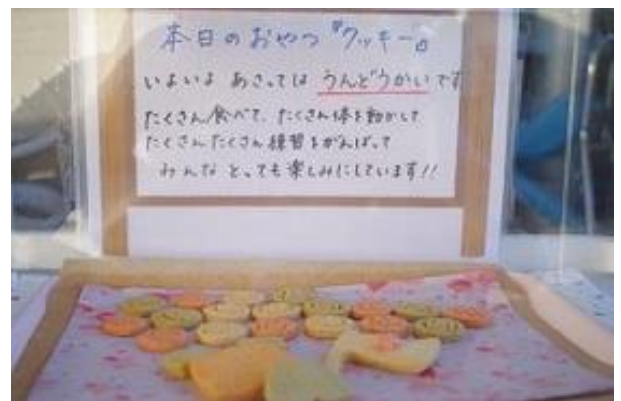 本日のおやつ『クッキー』
いよいよ あさっては うんどうかいです
たくさん食べて、たくさん体を動かして
たくさんたくさん練習をがんばって
みんな とっても楽しみにしています!!